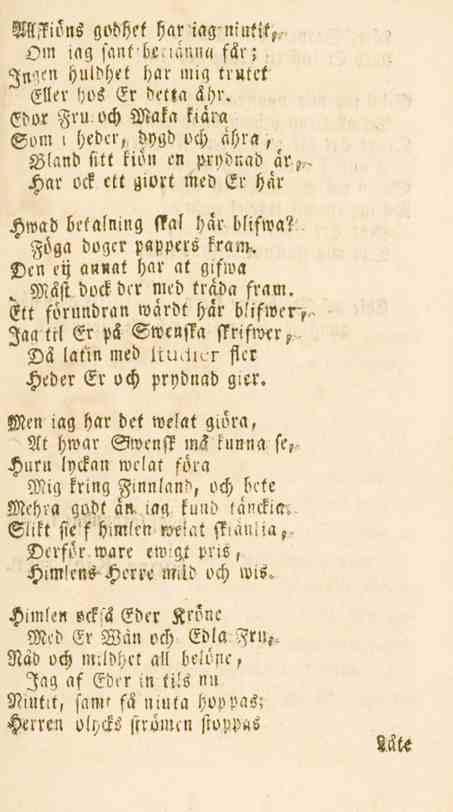 Allskiöns godhet har iag niutit,
Om iag sant bekiänna får;
Ingen huldhet har mig trutet
Eller hos Er detta åhr.
Edor Fru och Maka kiära
Som i heder, dygd och ähra,
Bland sitt kiön en prydnad är,
Har ock ett giort med Er här

Hwad betalning skal här blifwa?
Föga doger pappers kram.
Den eij annat har at gifwa
Måst dock der med träda fram.
Ett förundran wärdt här blifwer,
Jag til Er på Swenska skrifwer,
Då latin med studier fler
Heder Er och prydnad gier.

Men iag har det welat giöra,
At hwar Swensk må kunna se,
Huru lyckan welat föra
Mig kring Finnland, och bete
Mehra godt än iag kund tänckia,
Slikt sielf himlen welat skiänkia,
Derför ware ewigt pris,
Himlens Herre mild och wis.

Himlen också Eder Kröne
Med Er Wän och Edla Fru,
Nåd och mildhet all belöne,
Jag af Eder in tils nu
Niutit, samt få niuta hoppas;
Herren olycks strömen stoppas
Låte